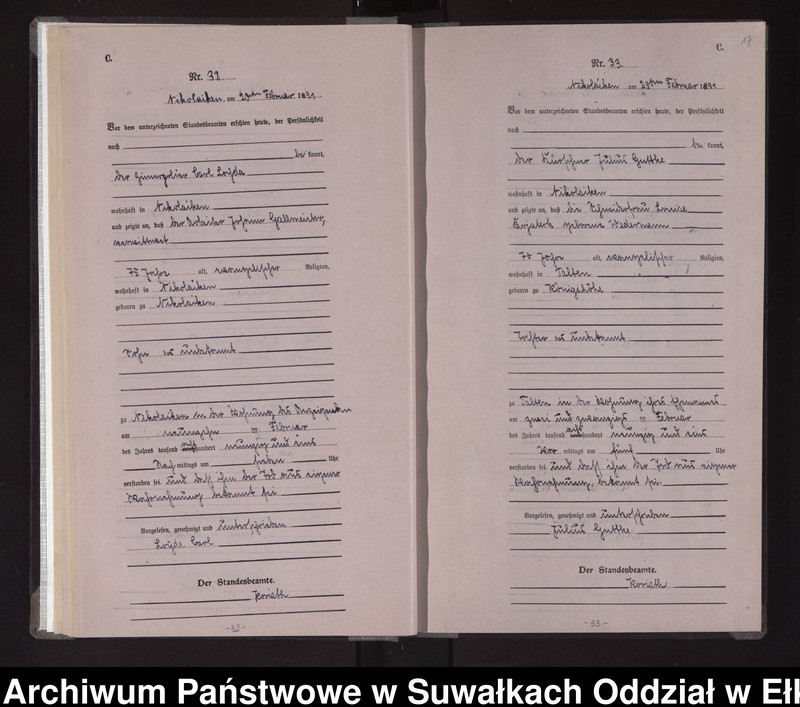 C.
Nr. 32.
Nikolaiken, am 23ten Februar 1891.
Vor dem unterzeichneten Standesbeamten erschien heute, der Persönlichkeit
nach
be kannt,
der Carl Loyda
wohnhaft in Nikolaiken
und zeigte an, daß der Arbeiter Johann Gallmeister,
75 Jahre alt, evangelischer Religion,
wohnhaft in Nikolaiken
geboren zu Nikolaiken
Sohn des unbekannt
zu Nikolaiken in der Wohnung des
am neunzehn ten Februar
des Jahres tausend acht hundert neunzig und eins
Nach mittags um sieben Uhr
verstorben sei und daß ihm der Tod aus eigener
Wahrnehmung bekannt sei.
Vorgelesen, genehmigt und unterschrieben
Loyda Carl
Der Standesbeamte.
-32-
17
C.
Nr. 33
Nikolaiken, am 23ten Februar 1891
Vor dem unterzeichneten Standesbeamten erschien heute, der Persönlichkeit
nach
be kannt,
der Kürschner Julius Guttke
wohnhaft in Nikolaiken
und zeigte an, daß die Schneiderfrau Louise
geborene Wedemann
alt, evangelischer Religion,
wohnhaft in Talten
geboren zu Königshöhe
Tochter des unbekannt
zu Talten in der Wohnung ihres Ehemannes
am zwei und zwanzigsten Februar
des Jahres tausend acht hundert neunzig und eins
Vor mittags um fünf Uhr
verstorben sei und daß ihm der Tod aus eigener
Wahrnehmung bekannt sei.
Vorgelesen, genehmigt und unterschrieben
Julius Guttke
Der Standesbeamte.
-33-
Archiwum Państwowe w Suwałkach Oddział w Ełk